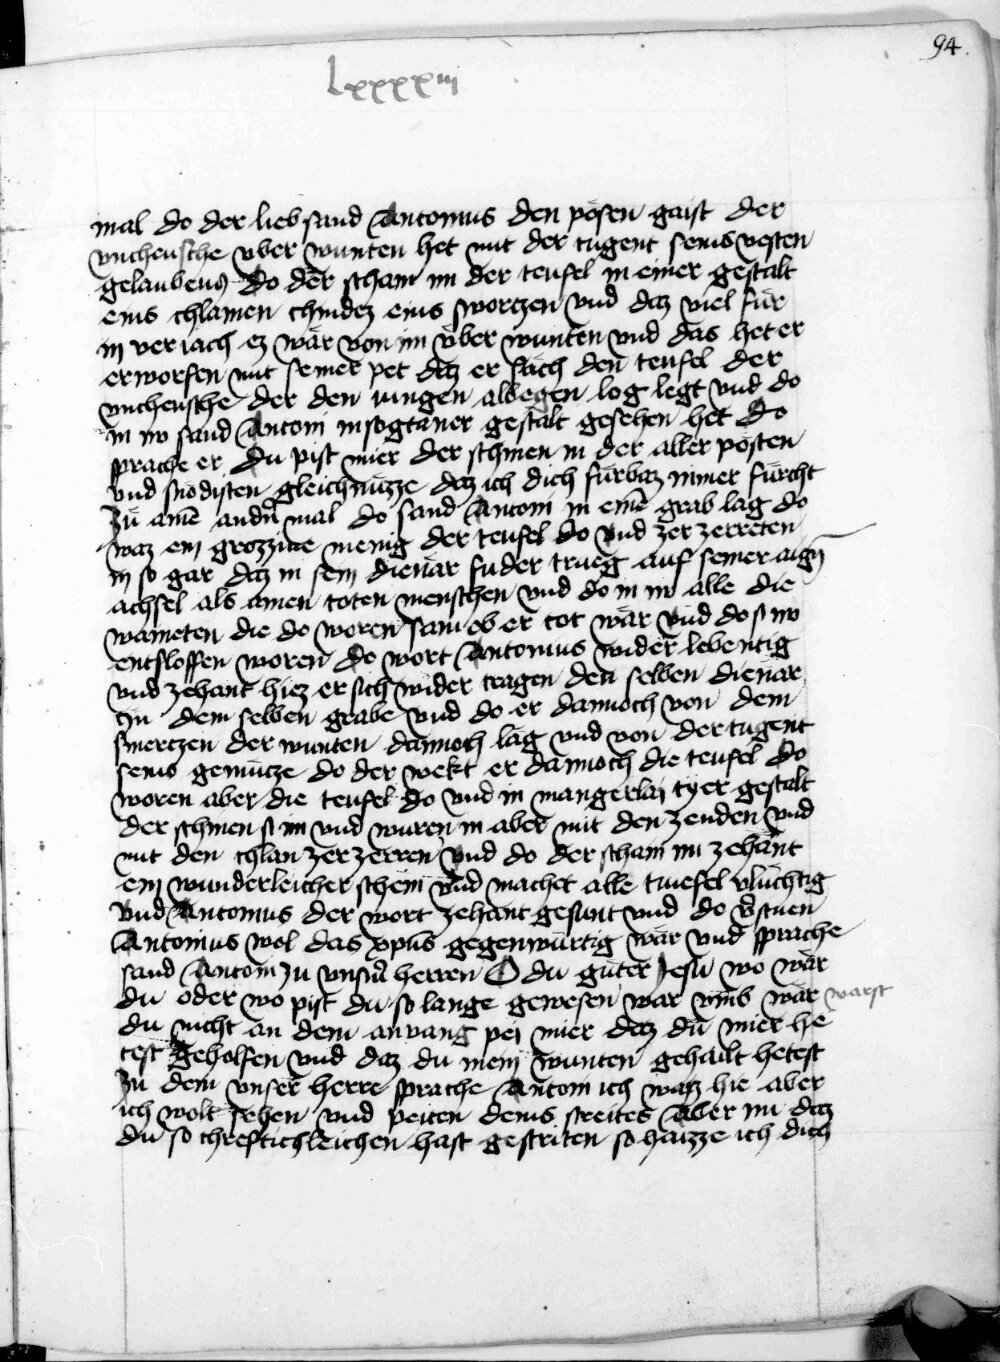 94.
Lxxxxiii
mal do der lieb sand Antonius den pösen gaist der
vncheusche vber wunten het mit der tugent seins vesten
gelaubens Do der scham im der teufel in einer gestalt
eins chlainen chindez eins swortzen vnd daz viel für
in ver iach ez wär von im vber wunten vnd das het er
erworfen mit seiner pet daz er säch den teufel der
vncheusche der den iungen albegen log legt vnd do
in nv sand Antoni in sogtaner gestalt gesehen het Do
sprache er Du pist mier der schinen in der aller pösten
vnd snödisten gleichnüzze daz ich dich fürbaz nimer fürcht
Zü ainē andn̄ mal do sand Antoni in einē grab lag do
waz ein grozzive menig der teufel do vnd zer zerreten
in so gar daz in sein dienär fuder trueg auf seiner aign̄
achsel als ainen toten menschen vnd do in nv alle die
waineten die do woren sam ob er tot wär vnd do si nv
entsloffen woren do wort Antonius wider lebentig
vnd zehant hiez er sich wider tragen den selben dienär
in dem selben grabe vnd do er dannoch von dem
smertzen der wunten dannoch lag vnd von der tugent
seins gemütze do der wekt er dannoch die teufel Do
woren aber die teufel do vnd in mangerlai tyer gestalt
der schinen si im vnd wuren in aber mit den zenden vnd
mit den chlan zer zerren vnd do der scham im zehant
ein wunderleicher schein vnd machet alle tuefel vlüchtig
vnd Antonius der wort zehant gesunt vnd do v̄stuen
Antonius wol das xp̄us gegenwürtig wär vnd sprache
sand Antoni zu vnsm̄ herren O du güter Jesu wo wär
du oder wo pist du so lange gewesen war vmb wär warst
du nicht an dem anvang pei mier daz dü mier he
test geholfen vnd daz du mein wunten gehailt hetest
Zu dem vnser herre sprache Antoni ich waz hie aber
ich wolt sehen vnd peiten deins streites Aber nu daz
du so chreftichleichen hast gestriten so haizze ich dich